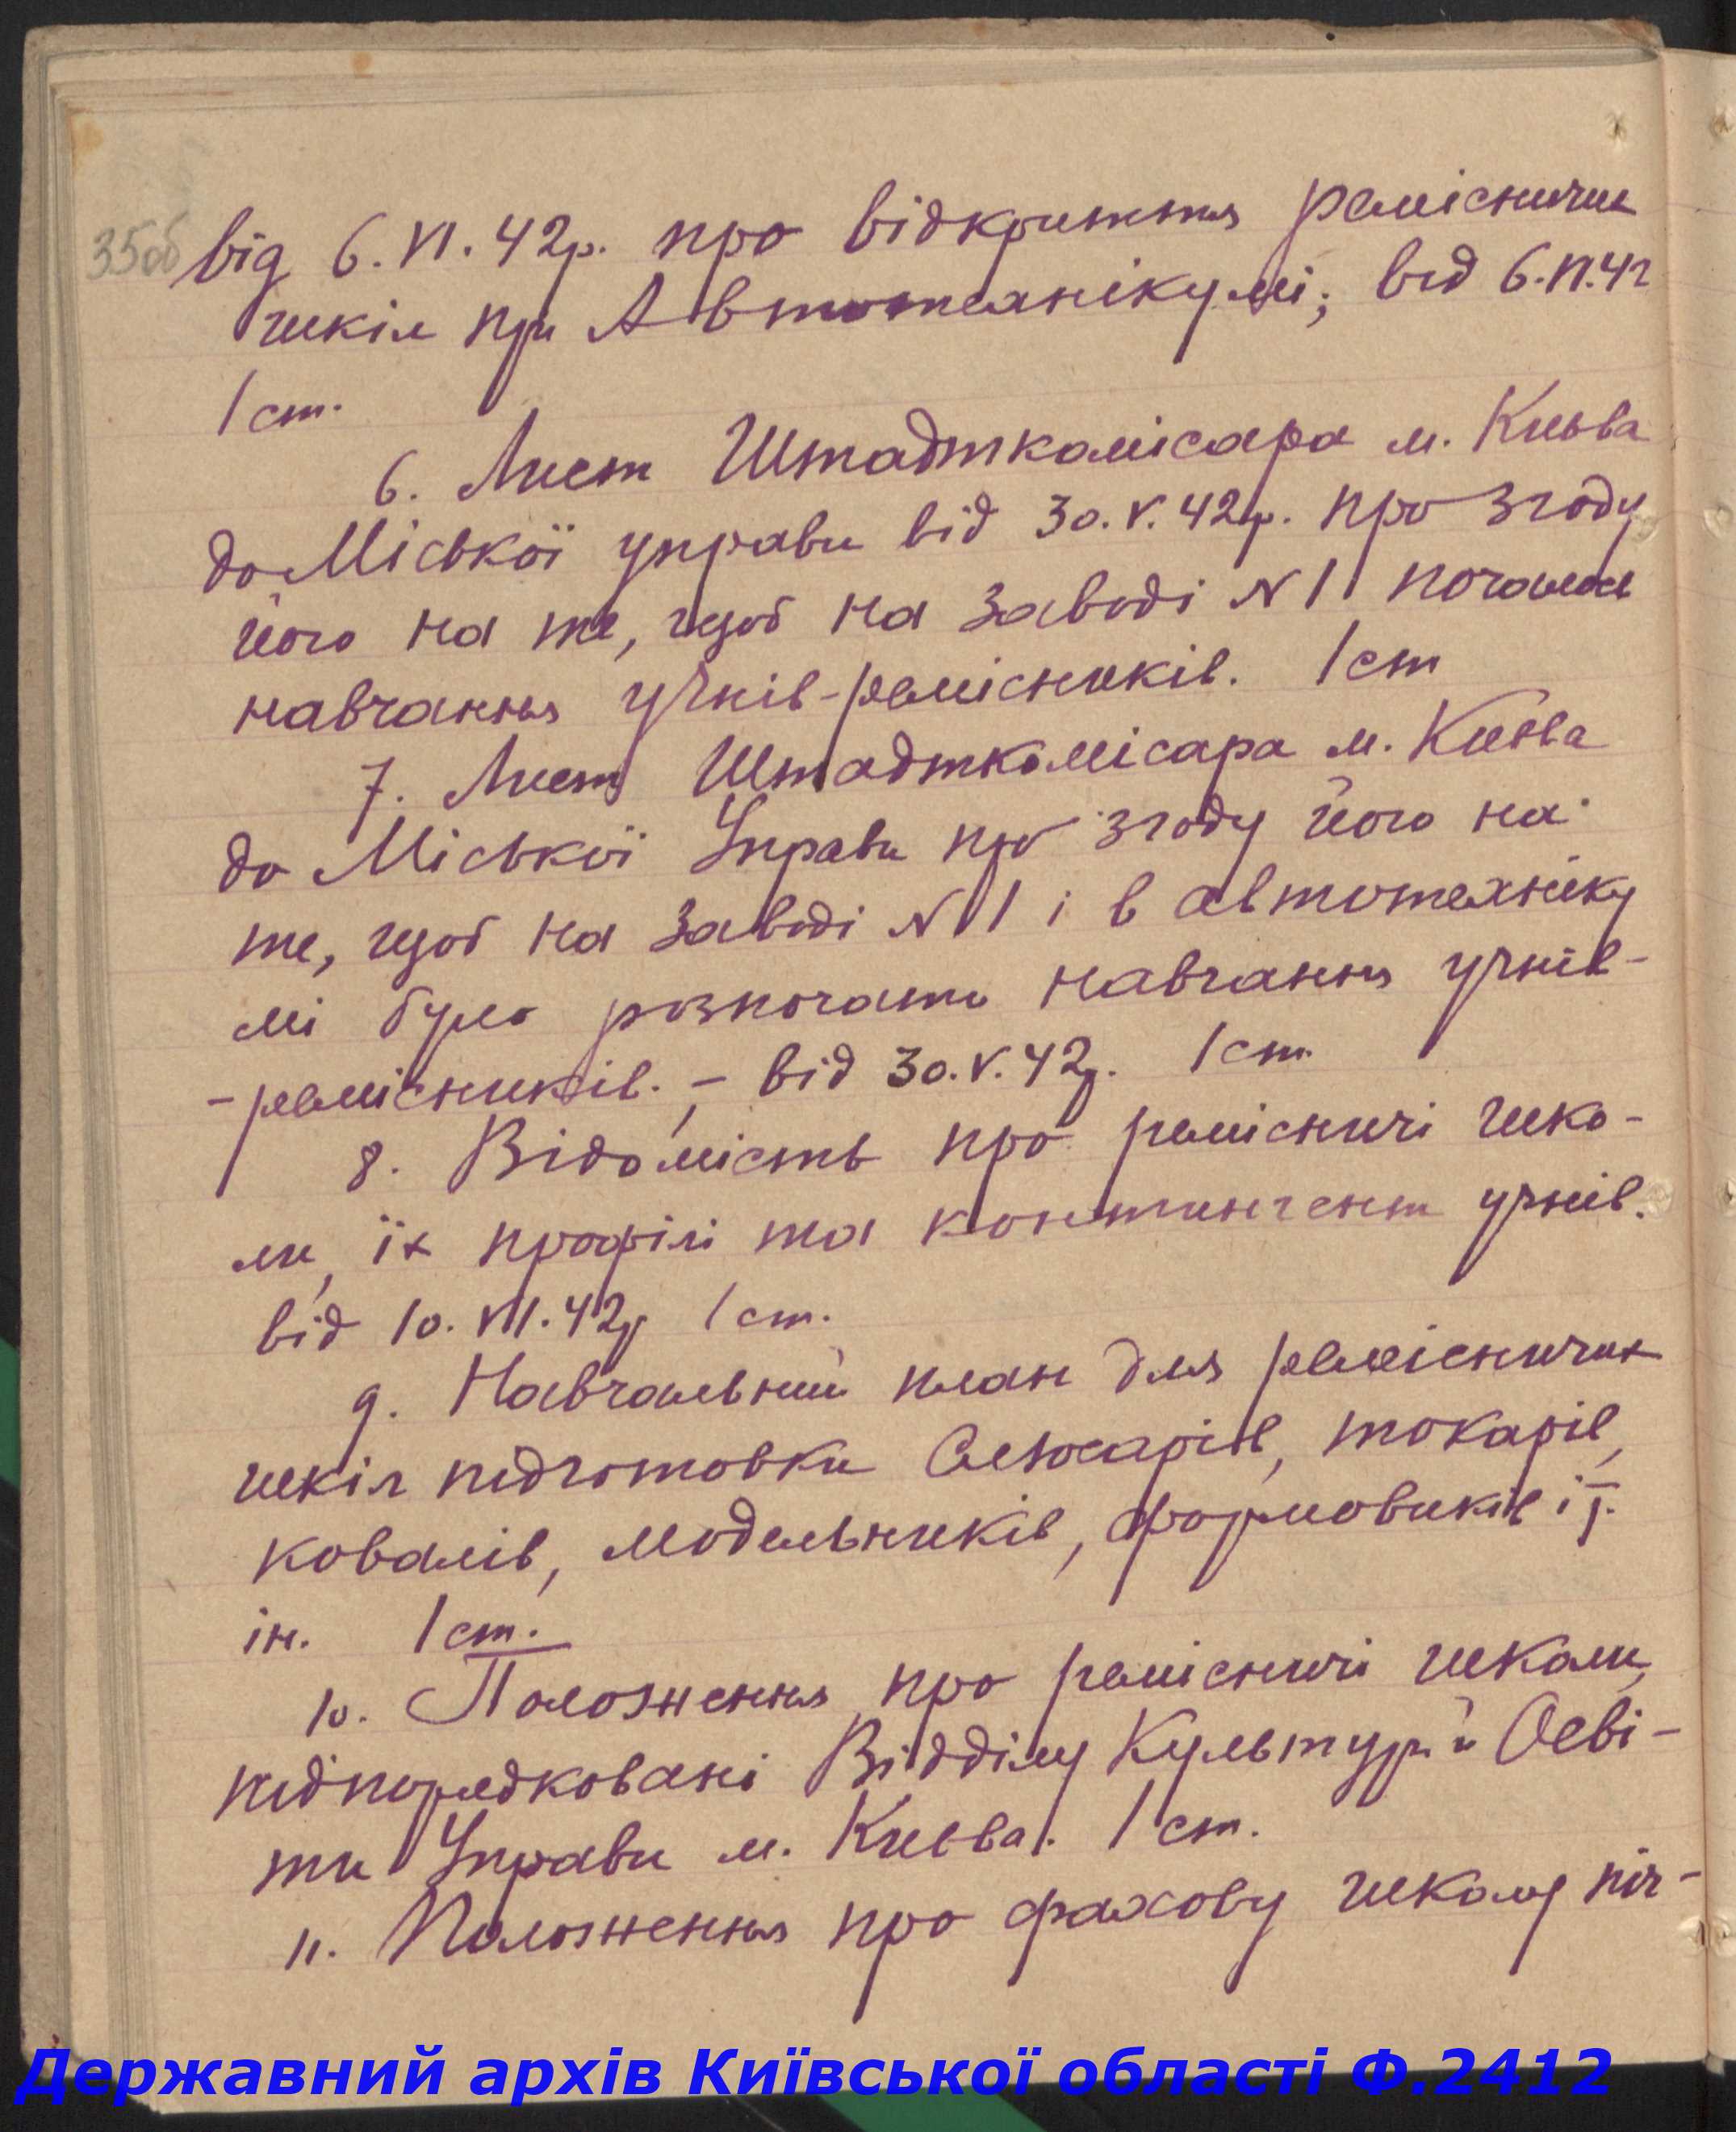 35об
від 6.VI.42р. про відкриття ремісничих
шкіл при Автотехнікумі; від 6.VI.42
1 ст.
6. Лист Штадткомісара м. Києва
до Міської управи від 30.V.42р. про згоду
його на те, щоб на заводі №1 почалось
навчання учнів-ремісників. 1 ст
7. Лист Штадткомісара м. Києва
до Міської Управи про згоду його на
те, щоб на заводі №1 і в автотехніку
мі було розпочато навчання учнів-
-ремісників. - від 30.V.42р. 1 ст.
8. Відомість про ремісничі шко-
ли, їх профілі та контингент учнів.
від 10.VII.42р 1 ст.
9. Навчальний план для ремісничих
шкіл підготовки слюсарів, токарів,
ковалів, модельників, формовиків і т.
ін. 1 ст.
10. Положення про ремісничі школи,
підпорядковані Відділу Культури й Осві-
ти Управи м. Києва. 1 ст.
11. Положення про фахову школу піч-
Державний архів Київської області Ф.2412